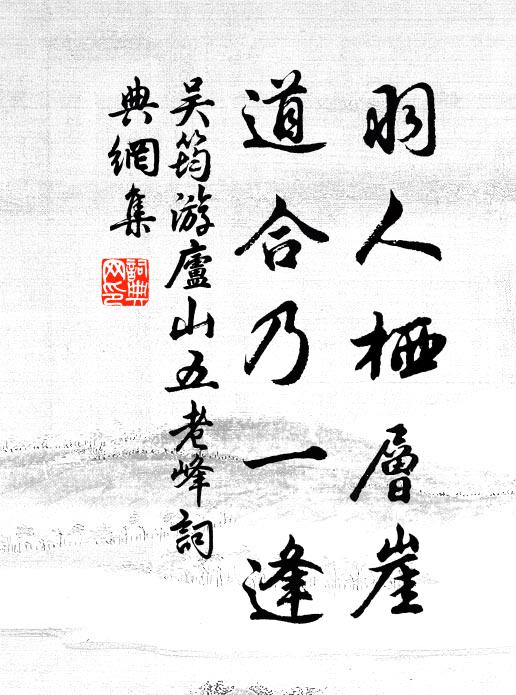 羽人栖層崖
道合乃一逢
吴筠游廬山五老峰詞
典網集
詞典
网印